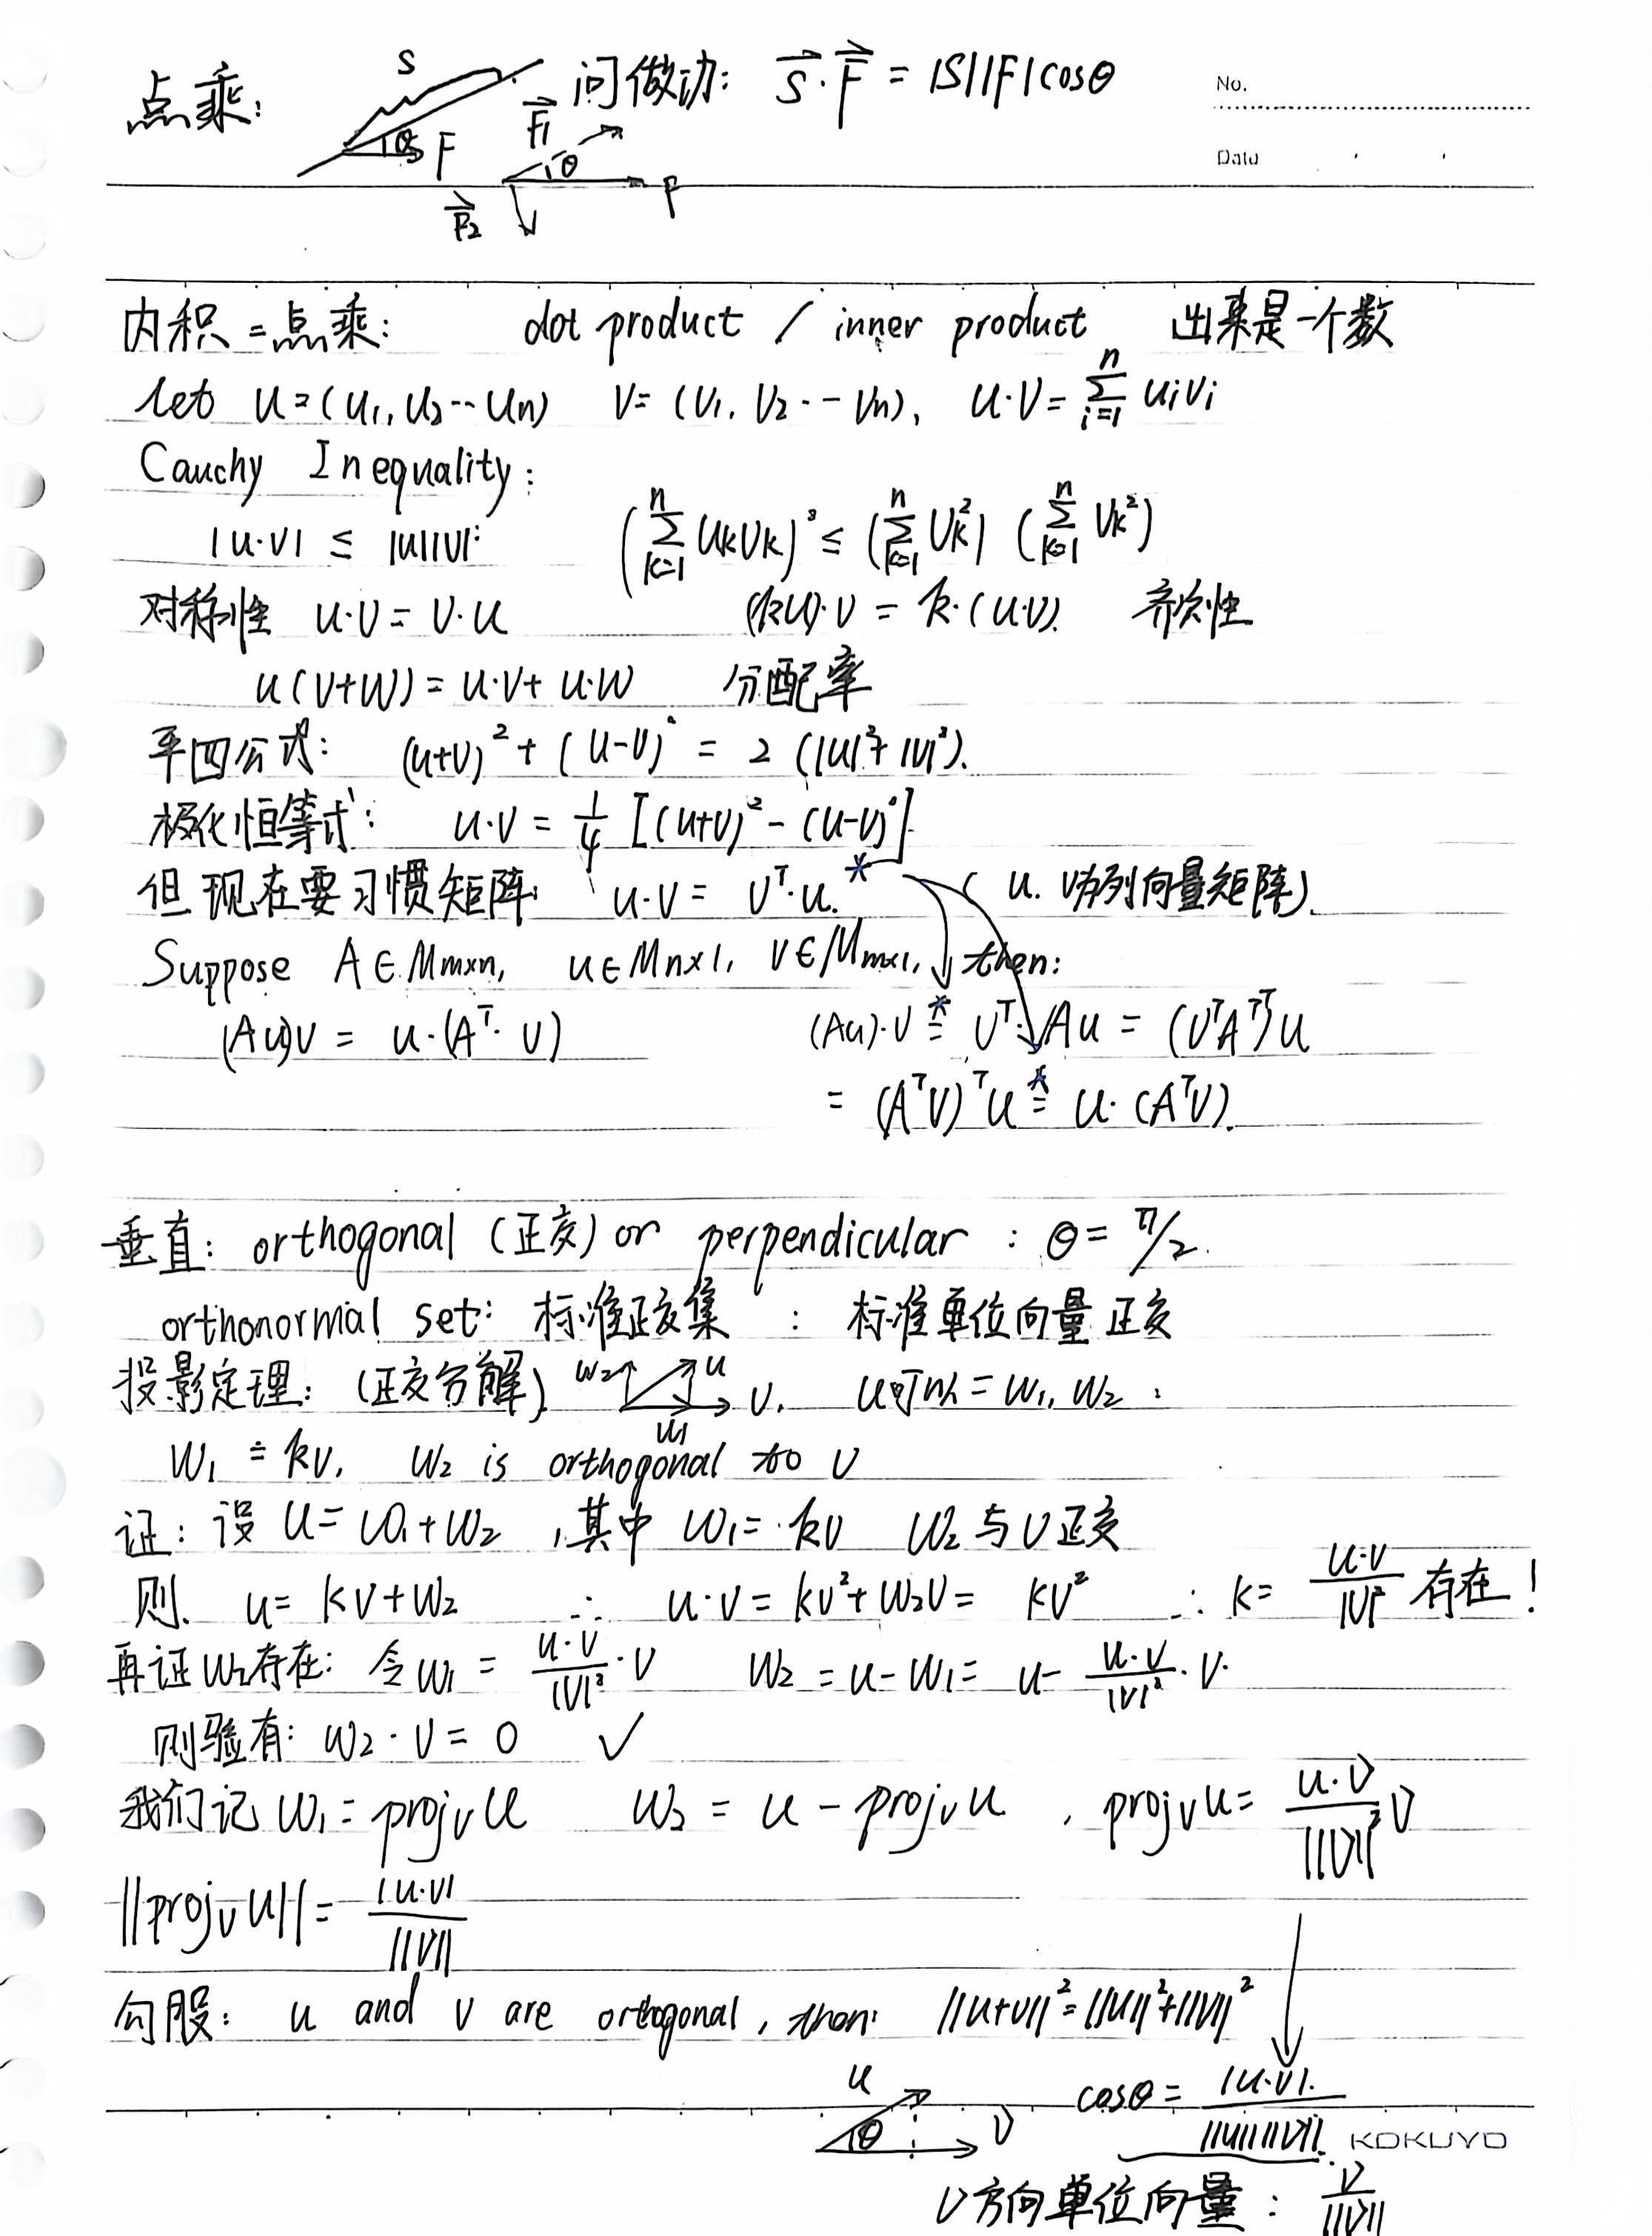 点乘: S θ F 问做功: S⃗·F⃗ = |S||F|cosθ
No.
Date
F⃗1 θ F F⃗2
内积=点乘: dot product / inner product 出来是一个数
let u=(u₁, u₂--un) v=(v₁, v₂--vn), u·v=∑ᵢ₌₁ⁿ uᵢvᵢ
Cauchy Inequality:
|u·v| ≤ |u||v| (∑ₖ₌₁ⁿ uₖvₖ)² ≤ (∑ₖ₌₁ⁿ uₖ²) (∑ₖ₌₁ⁿ vₖ²)
对称性 u·v = v·u (ku)·v = k·(u·v). 齐次性
u(v+w) = u·v + u·w 分配率
平四公式: (u+v)² + (u-v)² = 2(|u|²+|v|²).
极化恒等式: u·v = 1/4 [(u+v)² - (u-v)²]
但现在要习惯矩阵: u·v = vᵀ·u. * (u. v为列向量矩阵).
Suppose A∈Mm×n, u∈Mn×1, v∈Mm×1, then:
(Au)v = u·(Aᵀ·v) (Au)·v =* vᵀ·Au = (vᵀAᵀᵀ)u
= (Aᵀv)ᵀu =* u·(Aᵀv).
垂直: orthogonal (正交) or perpendicular : θ = π/2.
orthonormal set: 标准正交集 : 标准单位向量正交
投影定理: (正交分解) w₂ u w₁ v. u可以=w₁, w₂ :
w₁ = kv, w₂ is orthogonal to v
证: 设 u = w₁+w₂ ,其中 w₁=kv w₂与v正交
则. u = kv+w₂ ∴ u·v = kv²+w₂v = kv² ∴ k = u·v/|v|² 存在!
再证w₂存在: 令w₁ = u·v/|v|² · v w₂ = u-w₁ = u - u·v/|v|² · v.
则验有: w₂·v = 0 ✓
我们记 w₁ = projᵥu w₂ = u - projᵥu , projᵥu = u·v/||v||² v
||projᵥu|| = |u·v|/||v||
勾股: u and v are orthogonal, then: ||u+v||² = ||u||²+||v||²
u θ v cosθ = |u·v|/||u||||v||.
KOKUYO
v方向单位向量: v/||v||